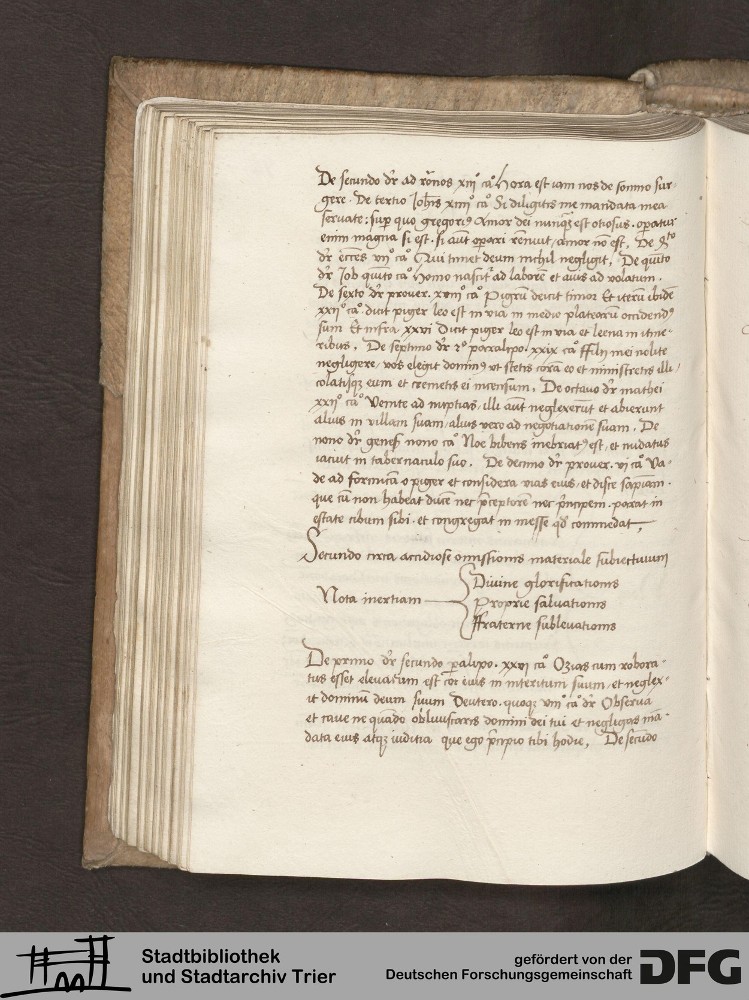 De secundo dr̄ ad ro̅nos xiij cā Hora est iam nos de somno sur-
gere. De tertio Joh̅is xiiij° cā Si diligitis me mandata mea
servate: sup̱ quo gregori9 Amor dei nunq̃ est otiosus. op̱atur
enim magna si est. si aūt op̱ari renuit, amor nō est. De q̊rto
dr̄ eccēs vij° cā Qui timet deum nichil negligit. De quīto
dr̄ Job quīto cā Homo nascit᷑ ad laborē et auis ad volatum.
De sexto dr̄ prover. xviij° cā Pigrū deicit timor Et iterū ibidē
xxij° cā. dicit piger leo est in via in medio platearū occidend9
sum Et infra xxvi Dicit piger leo est in via et leena in itine-
ribus. De septimo dr̄ 2° parralipo. xxix cā ffilij mei nolite
negligere, vos elegit domin9 vt stetis corā eo et ministretis illi,
colatisq̃ eum et cremetis ei incensum. De octauo dr̄ mathei
xxij° cā Venite ad nuptias, illi aūt neglexerūt et abierunt
alius in villam suam, alius vero ad negotiationē suam. De
nono dr̄ genes̄ nono cā Noe bibens inebriat9 est, et nudatus
iacuit in tabernaculo suo. De decimo dr̄ prover. vj cā Va-
de ad formicā o piger et considera vias eius, et disce sapiām.
que cū non habeat ducē nec p̄ceptorē nec p̄ncipem. parat in
estate cibum sibi. et congregat in messe qd̄ commedat,
Secundo circa accidiose omissionis materiale subiectiuum
Nota inertiam
Divine glorificationis
Proprie salvationis
ffraterne sublevationis
De primo dr̄ secundo p̱alipo. xxvi cā Ozias cum robora-
tus esset elevatum est cor eius in interitum suum, et neglex-
it dominū deum suum Deutero. quoq̃ viij° cā dr̄ Observa
et cave ne quādo obliviscaris domini dei tui et negligas mā-
data eius atq̃ iuditia que ego p̄cipio tibi hodie, De secūdo
Stadtbibliothek
und Stadtarchiv Trier
gefördert von der
Deutschen Forschungsgemeinschaft
DFG